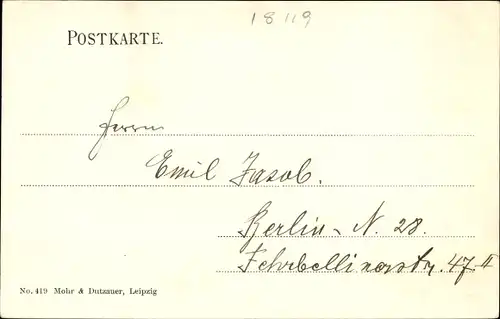 18119
POSTKARTE.
Herrn
Emil Jacob.
Berlin N. 28.
Fehrbellinerstr. 47 II
No. 419 Mohr & Dutzauer, Leipzig